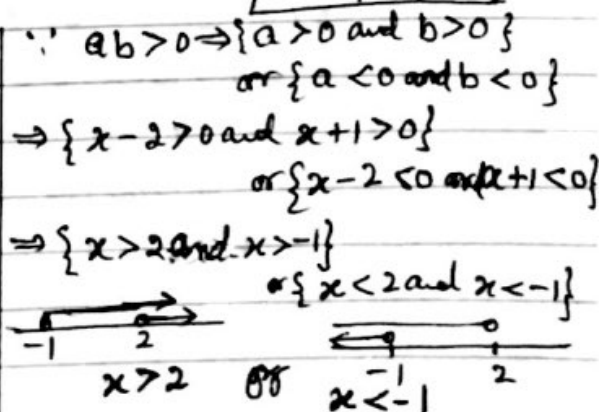 ∵ ab>0⇒{a>0 and b>0}
or {a<0 and b<0}
⇒{x-2>0 and x+1>0}
or {x-2<0 and x+1<0}
⇒{x>2 and x>-1}
or {x<2 and x<-1}
-1 2 -1 2
x>2 or x<-1